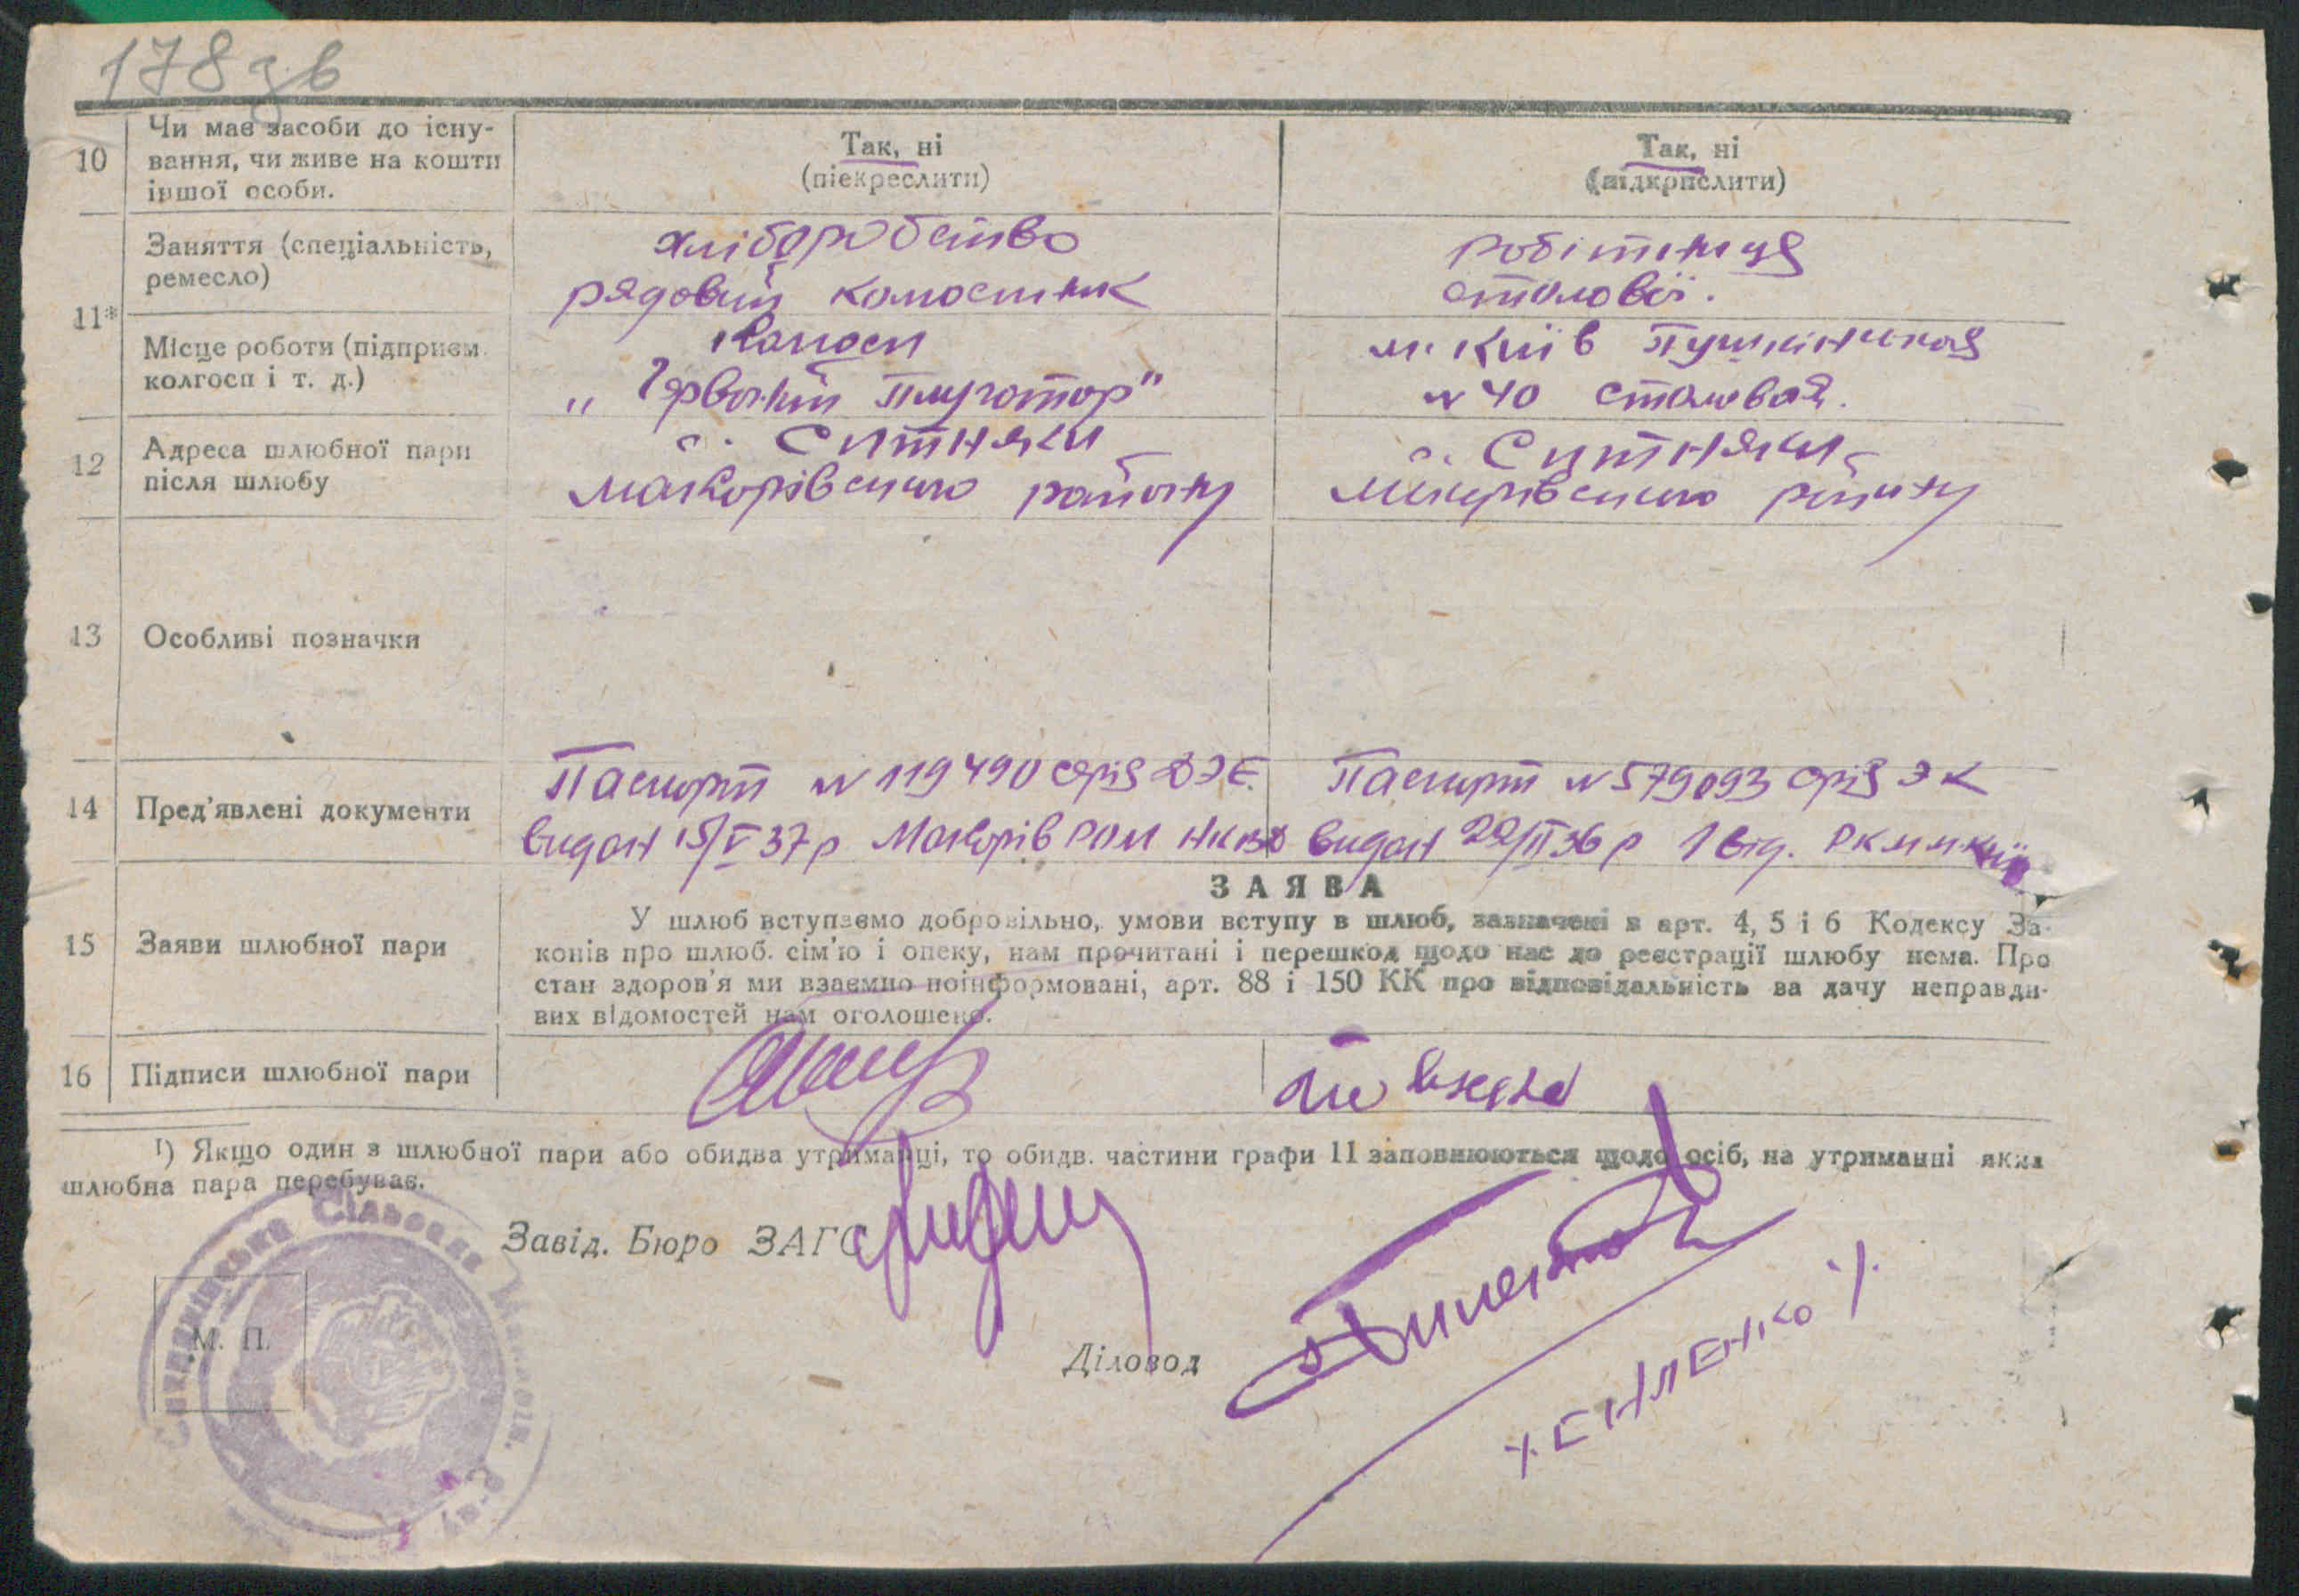 178 зв
10
Чи має засоби до існу-
вання, чи живе на кошти
іншої особи.
Так, ні
(піекреслити)
Так, ні
(підкрпслити)
11*
Заняття (спеціальність,
ремесло)
хліборобство
рядовий колгоспник
робітниця
столової.
Місце роботи (підприєм.
колгосп і т. д.)
Колгосп
„Червоний Плугатар"
м. Київ Пушкінская
№ 40 столовая.
12
Адреса шлюбної пари
після шлюбу
с. Ситняки
Макорівського району
с. Ситняки
Макорівського району
13
Особливі позначки
14
Пред'явлені документи
Паспорт № 119490 серія ДЭЕ
видан 15/V 37 р Макорів РОМ НКВД
Паспорт № 579093 серія ЭК
видан 22/II 36 р 1 від. РКМ м. Київ
15
Заяви шлюбної пари
ЗАЯВА
У шлюб вступаємо добровільно, умови вступу в шлюб, зазначені в арт. 4, 5 і 6 Кодексу За-
конів про шлюб. сім'ю і опеку, нам прочитані і перешкод щодо нас до реєстрації шлюбу нема. Про
стан здоров'я ми взаємно поінформовані, арт. 88 і 150 КК про відповідальність за дачу неправди-
вих відомостей нам оголошено.
16
Підписи шлюбної пари
1) Якщо один з шлюбної пари або обидва утриманці, то обидв. частини графи 11 заповнюються щодо осіб, на утриманні яких
шлюбна пара перебуває.
Завід. Бюро ЗАГС
М. П.
Діловод